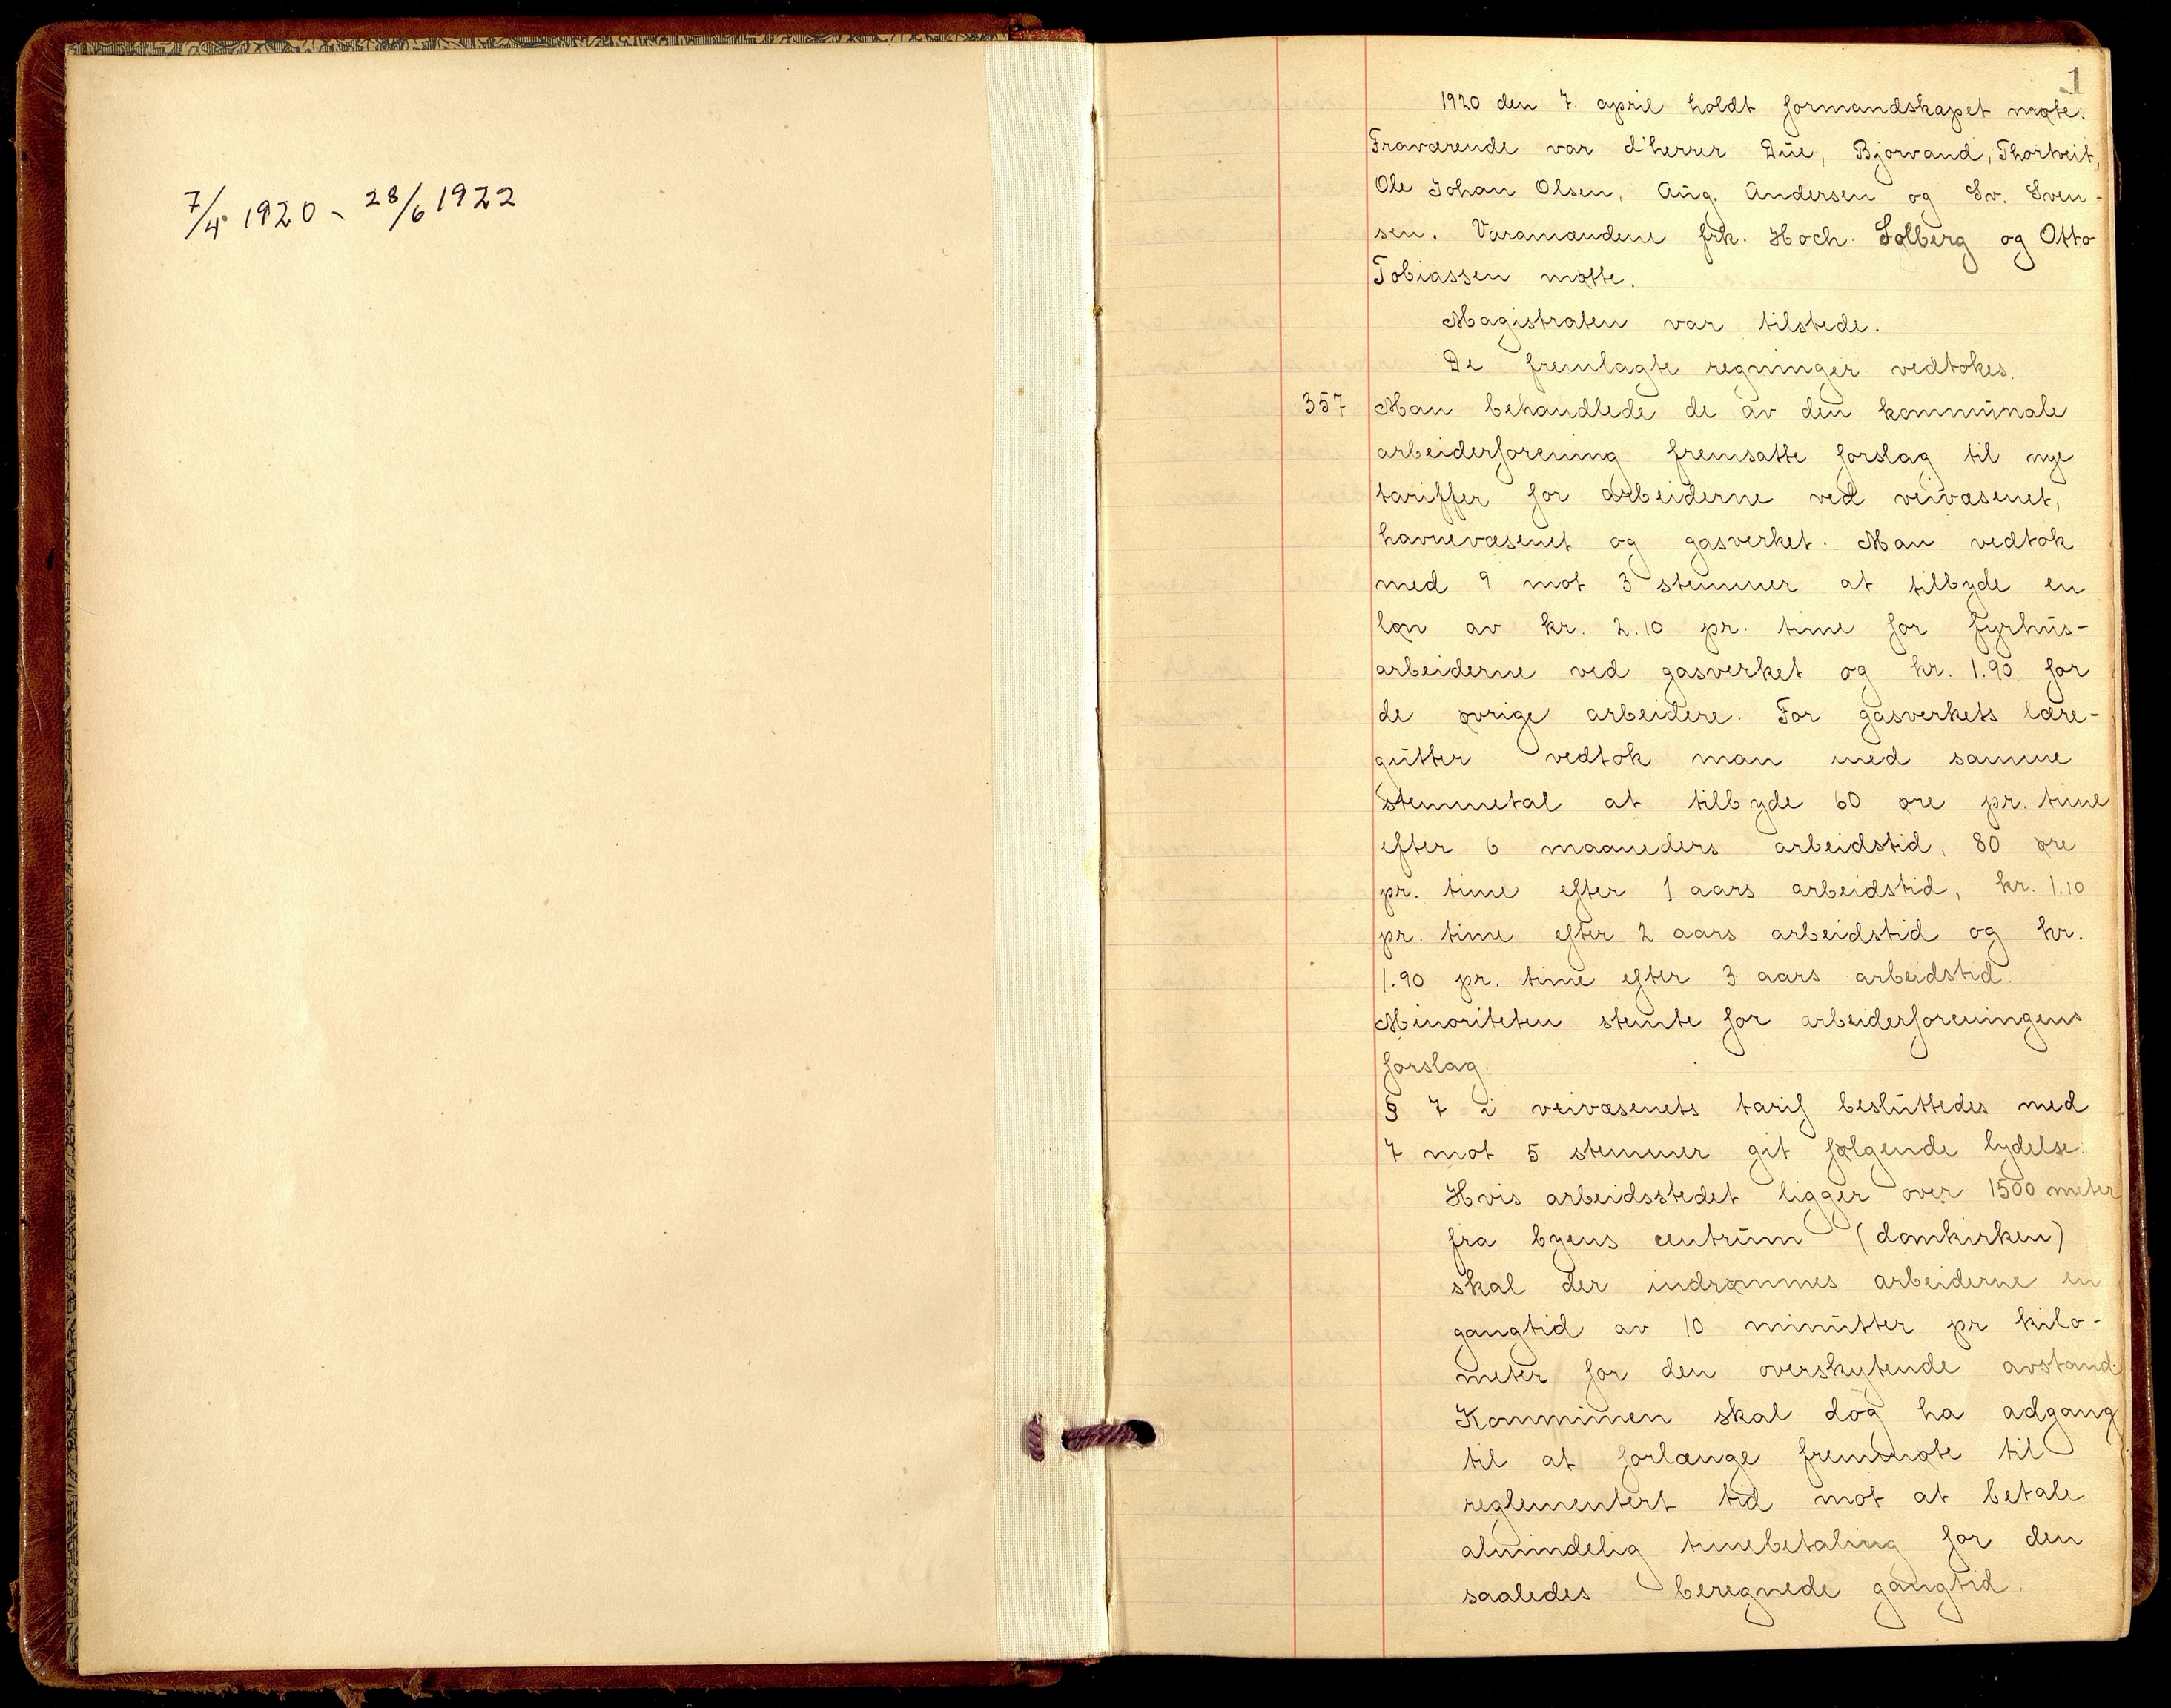 7/4 1920 - 28/6 1922
1
1920 den 7. april holdt formandskapet møte.
Fraværende var d'herrer Due, Bjorvand, Thortveit,
Ole Johan Olsen, Aug. Andersen og Sv. Sven-
sen. Varamændene frk. Hoch. Solberg og Otto
Tobiassen møtte.
Magistraten var tilstede.
De fremlagte regninger vedtokes.
357 Man behandlede de av den kommunale
arbeiderforening fremsatte forslag til nye
tariffer for arbeiderne ved veivæsenet,
havnevæsenet og gasverket. Man vedtok
med 9 mot 3 stemmer at tilbyde en
løn av kr. 2.10 pr. time for fyrhus-
arbeiderne ved gasverket og kr. 1.90 for
de øvrige arbeidere. For gasverkets lære-
gutter vedtok man med samme
stemmetal at tilbyde 60 øre pr. time
efter 6 maaneders arbeidstid, 80 øre
pr. time efter 1 aars arbeidstid, kr. 1.10
pr. time efter 2 aars arbeidstid og kr.
1.90 pr. time efter 3 aars arbeidstid.
Minoriteten stemte for arbeiderforeningens
forslag.
§ 7 i veivæsenets tarif besluttedes med
7 mot 5 stemmer git følgende lydelse.
Hvis arbeidsstedet ligger over 1500 meter
fra byens centrum (domkirken)
skal der indrømmes arbeiderne en
gangtid av 10 minutter pr kilo-
meter for den overskytende avstand.
Kommunen skal dog ha adgang
til at forlænge fremmøte til
reglementert tid mot at betale
almindelig timebetaling for den
saaledes beregnede gangtid.